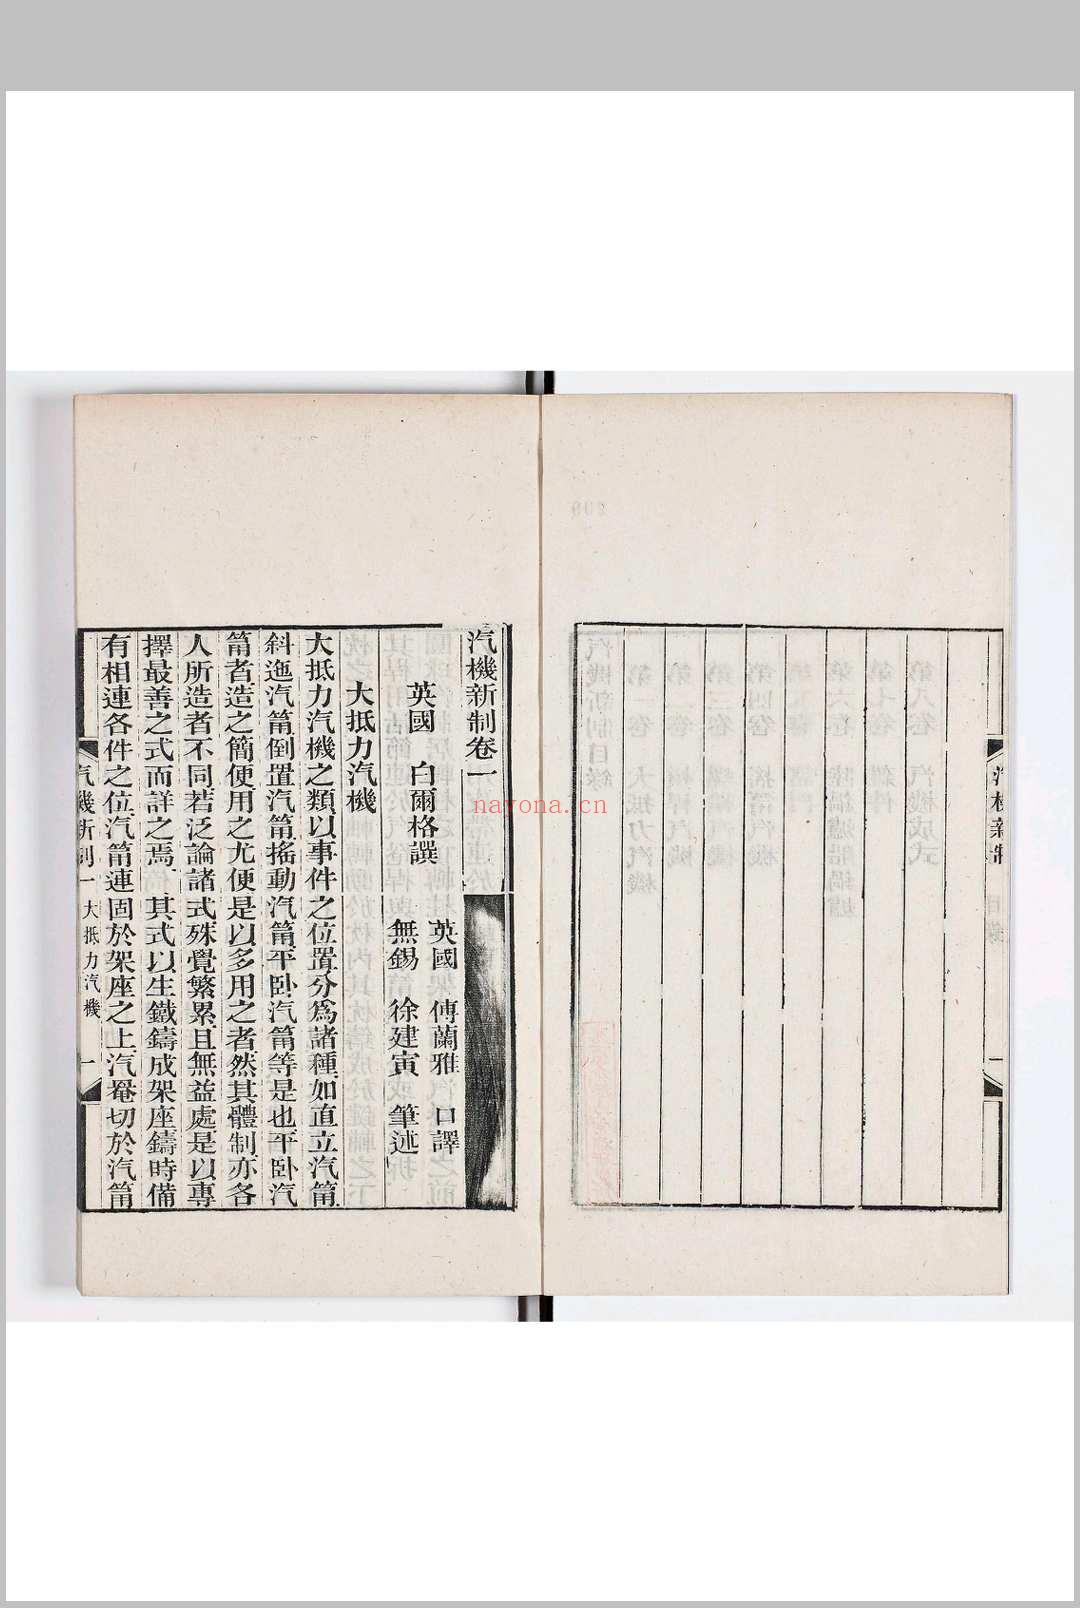 汽機新制卷一
英國 白爾格譔
英國 傅蘭雅 口譯
無錫 徐建寅 筆述
大抵力汽機
大抵力汽機之類以事件之位置分爲諸種如直立汽筩
斜迤汽筩倒置汽筩搖動汽筩平卧汽筩等是也平卧汽
筩者造之簡便用之尤便是以多用之者然其體制亦各
人所造者不同若泛論諸式殊覺繁累且無益處是以專
擇最善之式而詳之焉 其式以生鐵鑄成架座鑄時備
有相連各件之位汽筩連固於架座之上汽罨切於汽筩
汽機新制一 大抵力汽機 一
nayona.cn
汽機新制